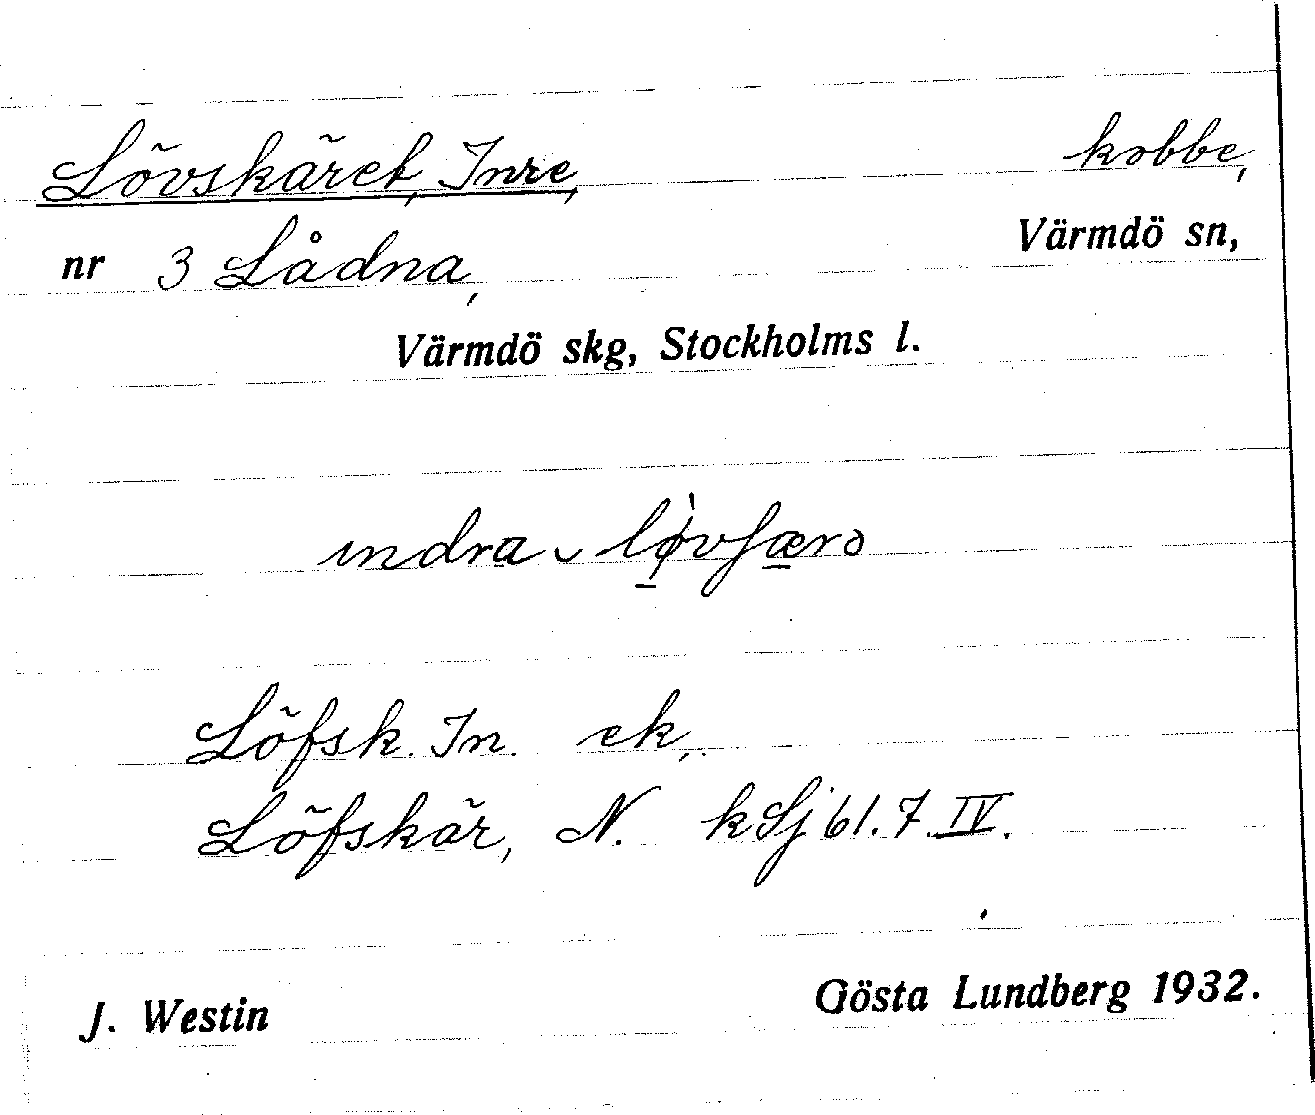 Lövskäret, Inre, kobbe,
nr 3 Lådna, Värmdö sn,
Värmdö skg, Stockholms l.
indra
Löfsk. In. ek.
Löfskär, N. kSj 61.7.IV.
J. Westin Gösta Lundberg 1932.